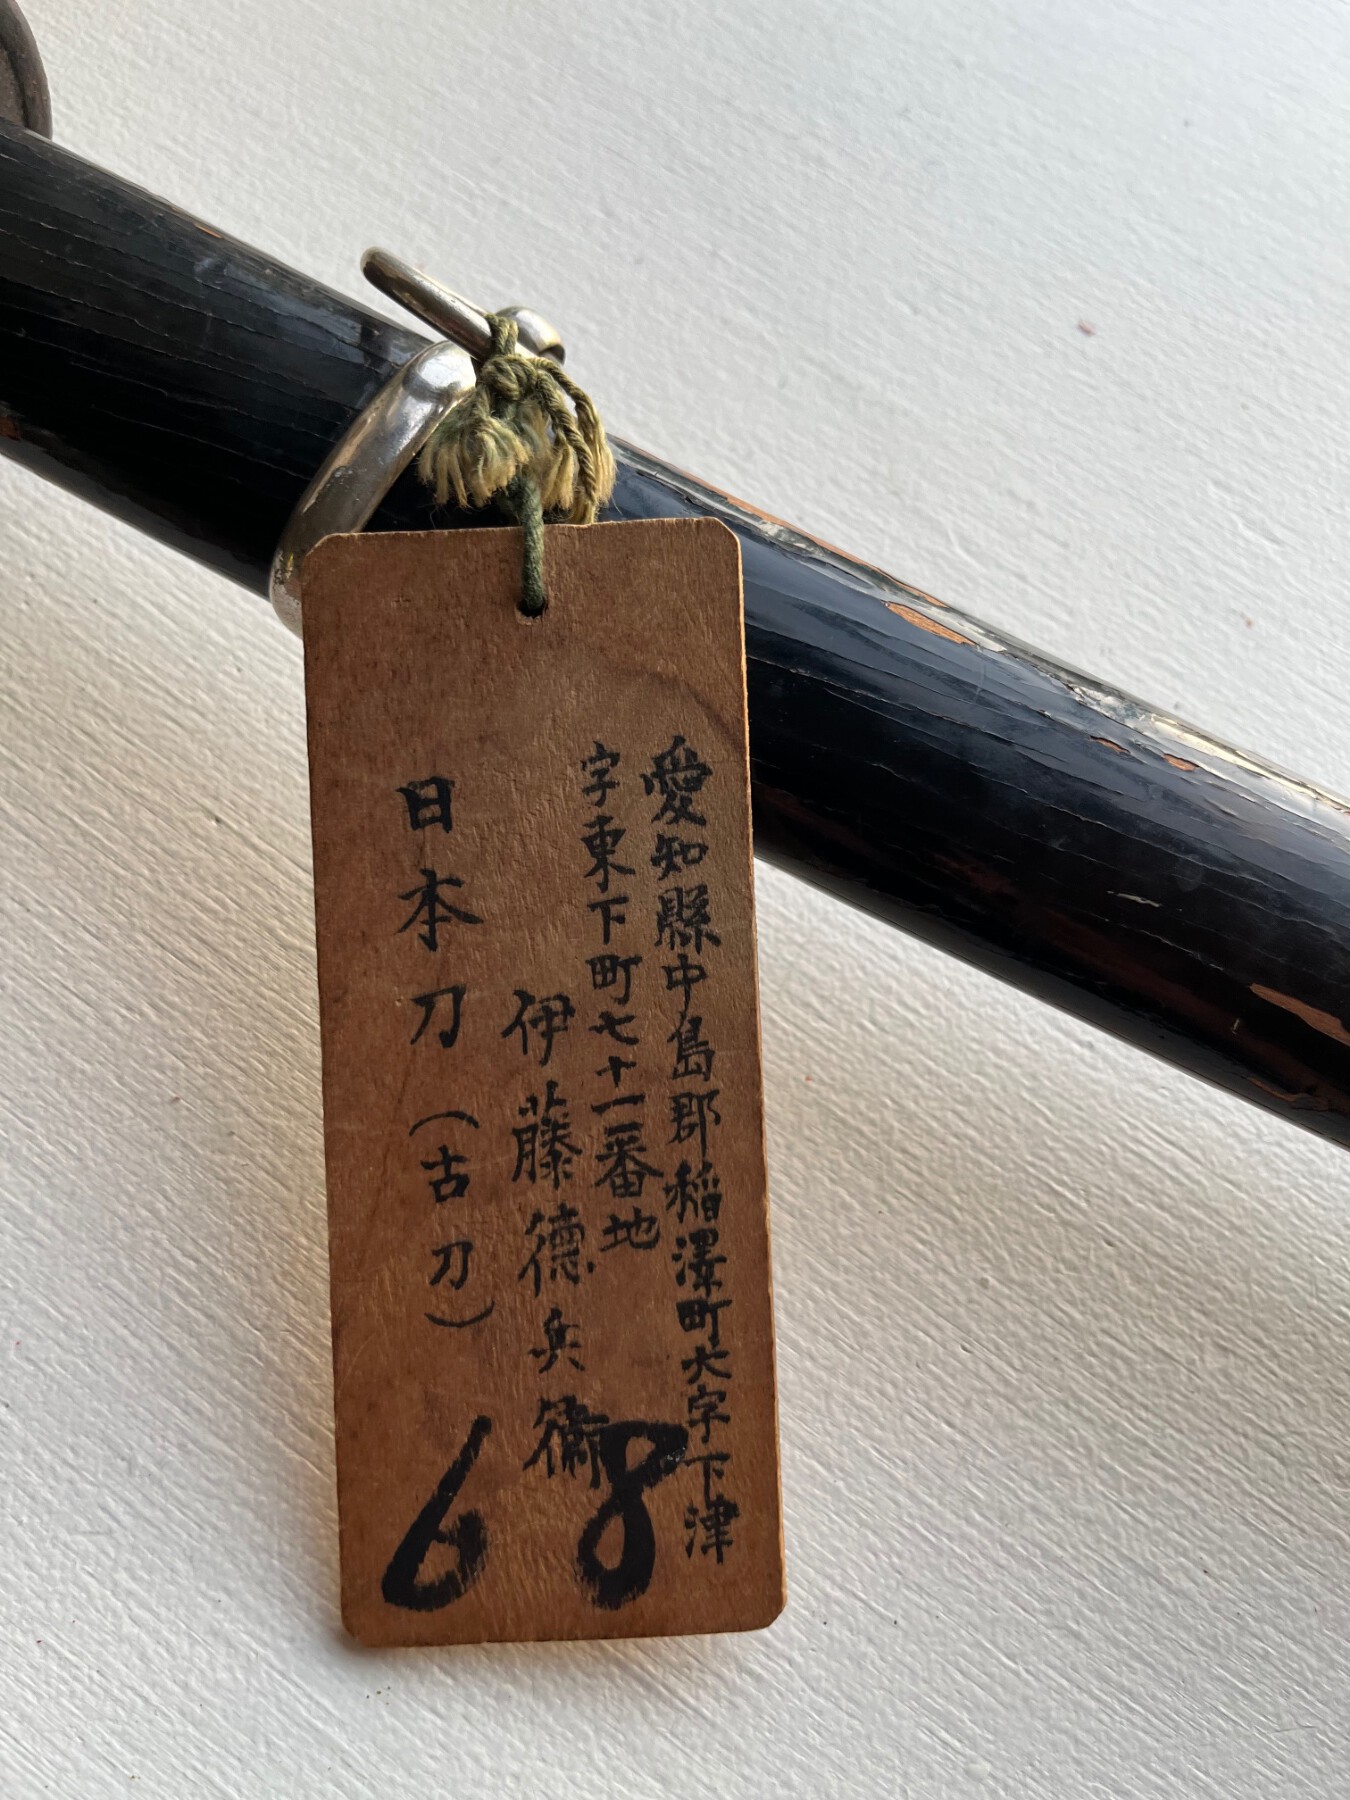 愛知縣中島郡稲澤町大字下津
字東下町七十一番地
伊藤德兵衛
日本刀(古刀)
68